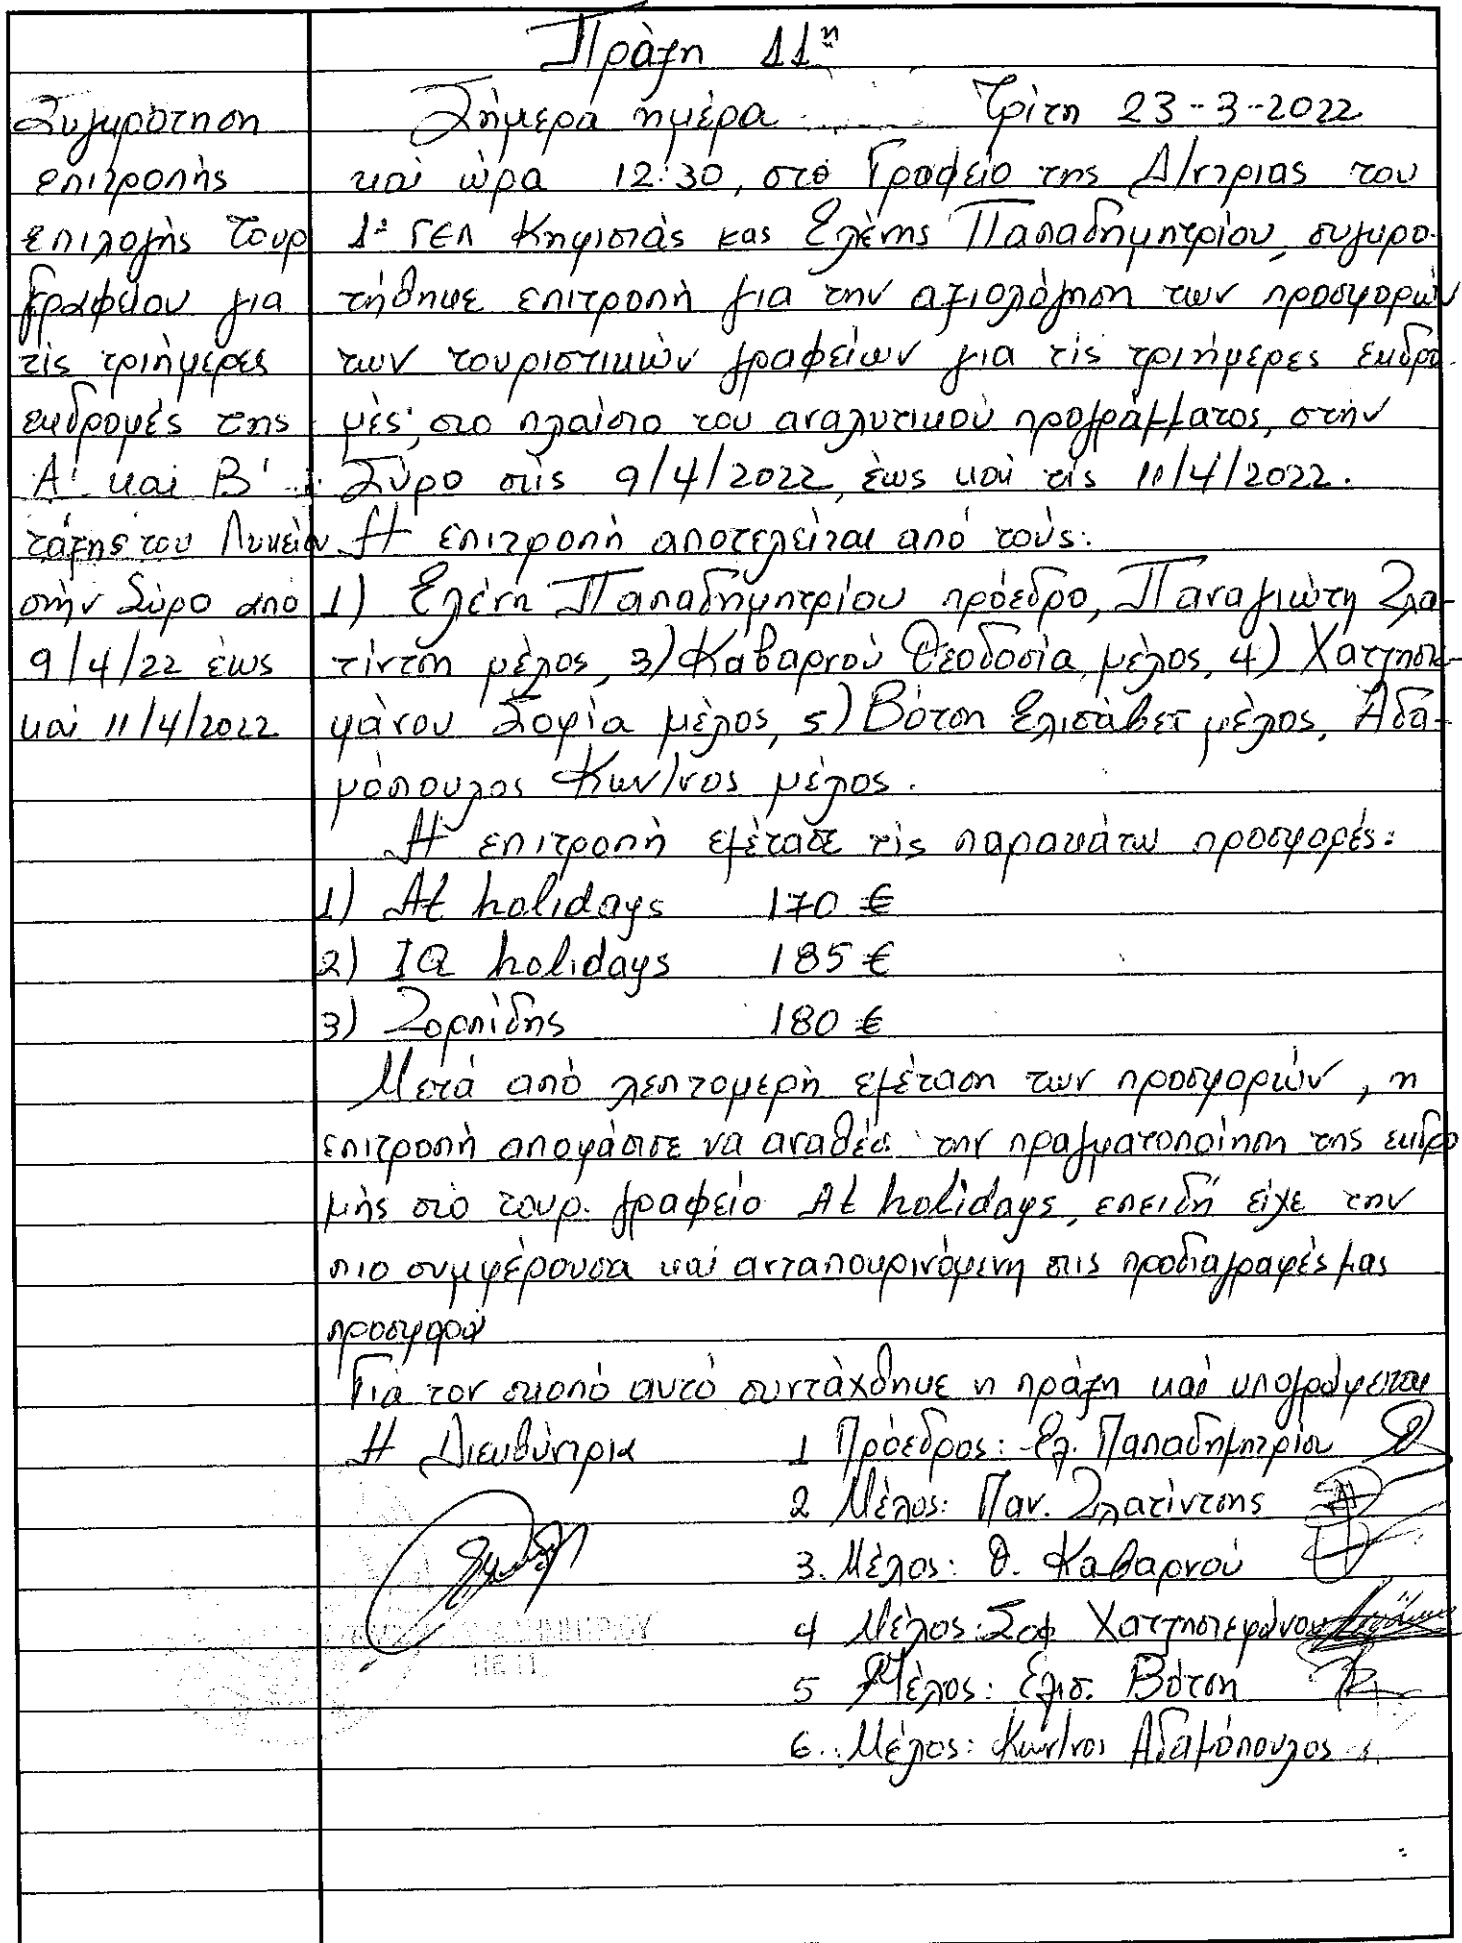 Πράξη 11η
Συγκρότηση
επιτροπής
επιλογής Τουρ
γραφείου για
τις τριήμερες
εκδρομές της
Α' και Β'
τάξης του Λυκείου
στην Σύρο από
9/4/22 έως
και 11/4/2022
Σήμερα ημέρα Τρίτη 23-3-2022
και ώρα 12:30, στο Γραφείο της Δ/ντριας του
1ου ΓΕΛ Κηφισιάς κας Ελένης Παπαδημητρίου, συγκρο-
τήθηκε επιτροπή για την αξιολόγηση των προσφορών
των τουριστικών γραφείων για τις τριήμερες εκδρο-
μές, στο πλαίσιο του αναλυτικού προγράμματος, στην
Σύρο στις 9/4/2022, έως και τις 11/4/2022.
Η επιτροπή αποτελείται από τους:
1) Ελένη Παπαδημητρίου πρόεδρο, Παναγιώτη Ζλα-
τίντση μέλος, 3) Καβαρνού Θεοδοσία μέλος, 4) Χατζηστε-
φάνου Σοφία μέλος, 5) Βότση Ελισάβετ μέλος, Αδα-
μόπουλος Κων/νος μέλος.
Η επιτροπή εξέτασε τις παρακάτω προσφορές:
1) At holidays 170 €
2) IQ holidays 185 €
3) Ζορπίδης 180 €
Μετά από λεπτομερή εξέταση των προσφορών, η
επιτροπή αποφάσισε να αναθέσει την πραγματοποίηση της εκδρο
μής στο τουρ. γραφείο At holidays, επειδή είχε την
πιο συμφέρουσα και ανταποκρινόμενη στις προδιαγραφές μας
προσφορά
Για τον σκοπό αυτό συντάχθηκε η πράξη και υπογράφεται
Η Διευθύντρια
1 Πρόεδρος: Ελ. Παπαδημητρίου
2 Μέλος: Παν. Ζλατίντσης
3. Μέλος: Θ. Καβαρνού
4 Μέλος: Σοφ Χατζηστεφάνου
5 Μέλος: Ελισ. Βότση
6. Μέλος: Κων/νος Αδαμόπουλος